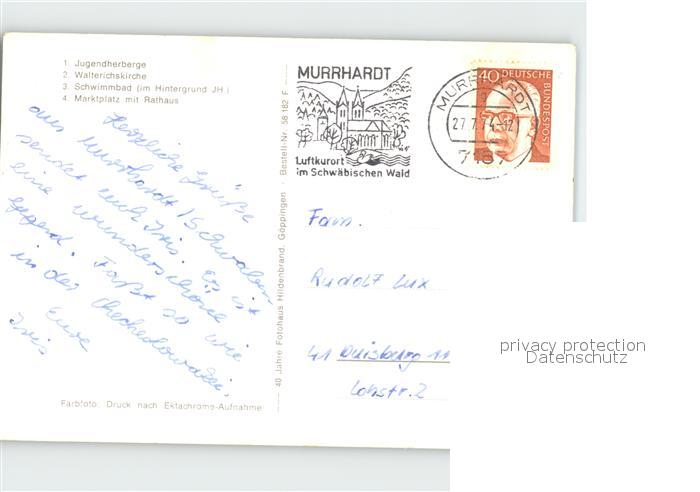 1. Jugendherberge
2. Walterichskirche
3. Schwimmbad (im Hintergrund JH.)
4. Marktplatz mit Rathaus
Herzliche Grüße
aus Murrhardt/Schwaben
sendet euch Iris. Es ist
eine wunderschöne
Gegend. Fast so wie
in der
Eure
Iris
Farbfoto: Druck nach Ektachrome-Aufnahme
40 Jahre Fotohaus Hildenbrand, Göppingen · Bestell-Nr. 58 182 F
MURRHARDT
Luftkurort
im Schwäbischen Wald
MURRHARDT
27.7.74-12
7157
40 DEUTSCHE
BUNDESPOST
Fam.
Rudolf Lux
41 Duisburg 11
Lohstr. 2
privacy protection
Datenschutz